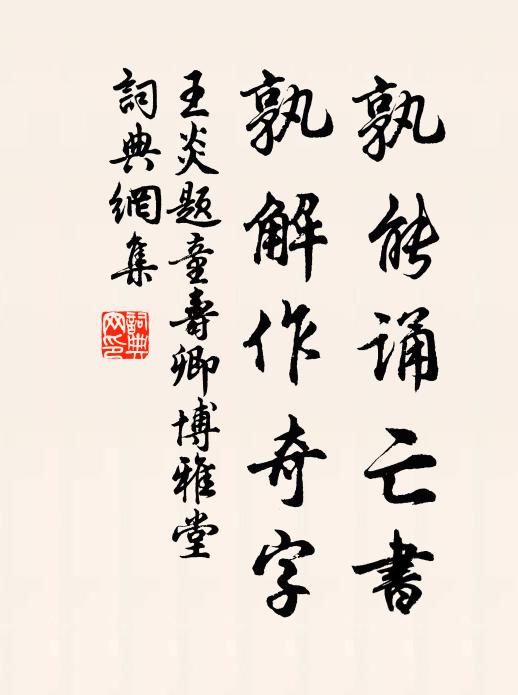 孰能誦亡書
孰解作奇字
王炎题童壽卿博雅堂
詞典網集
詞典
网印